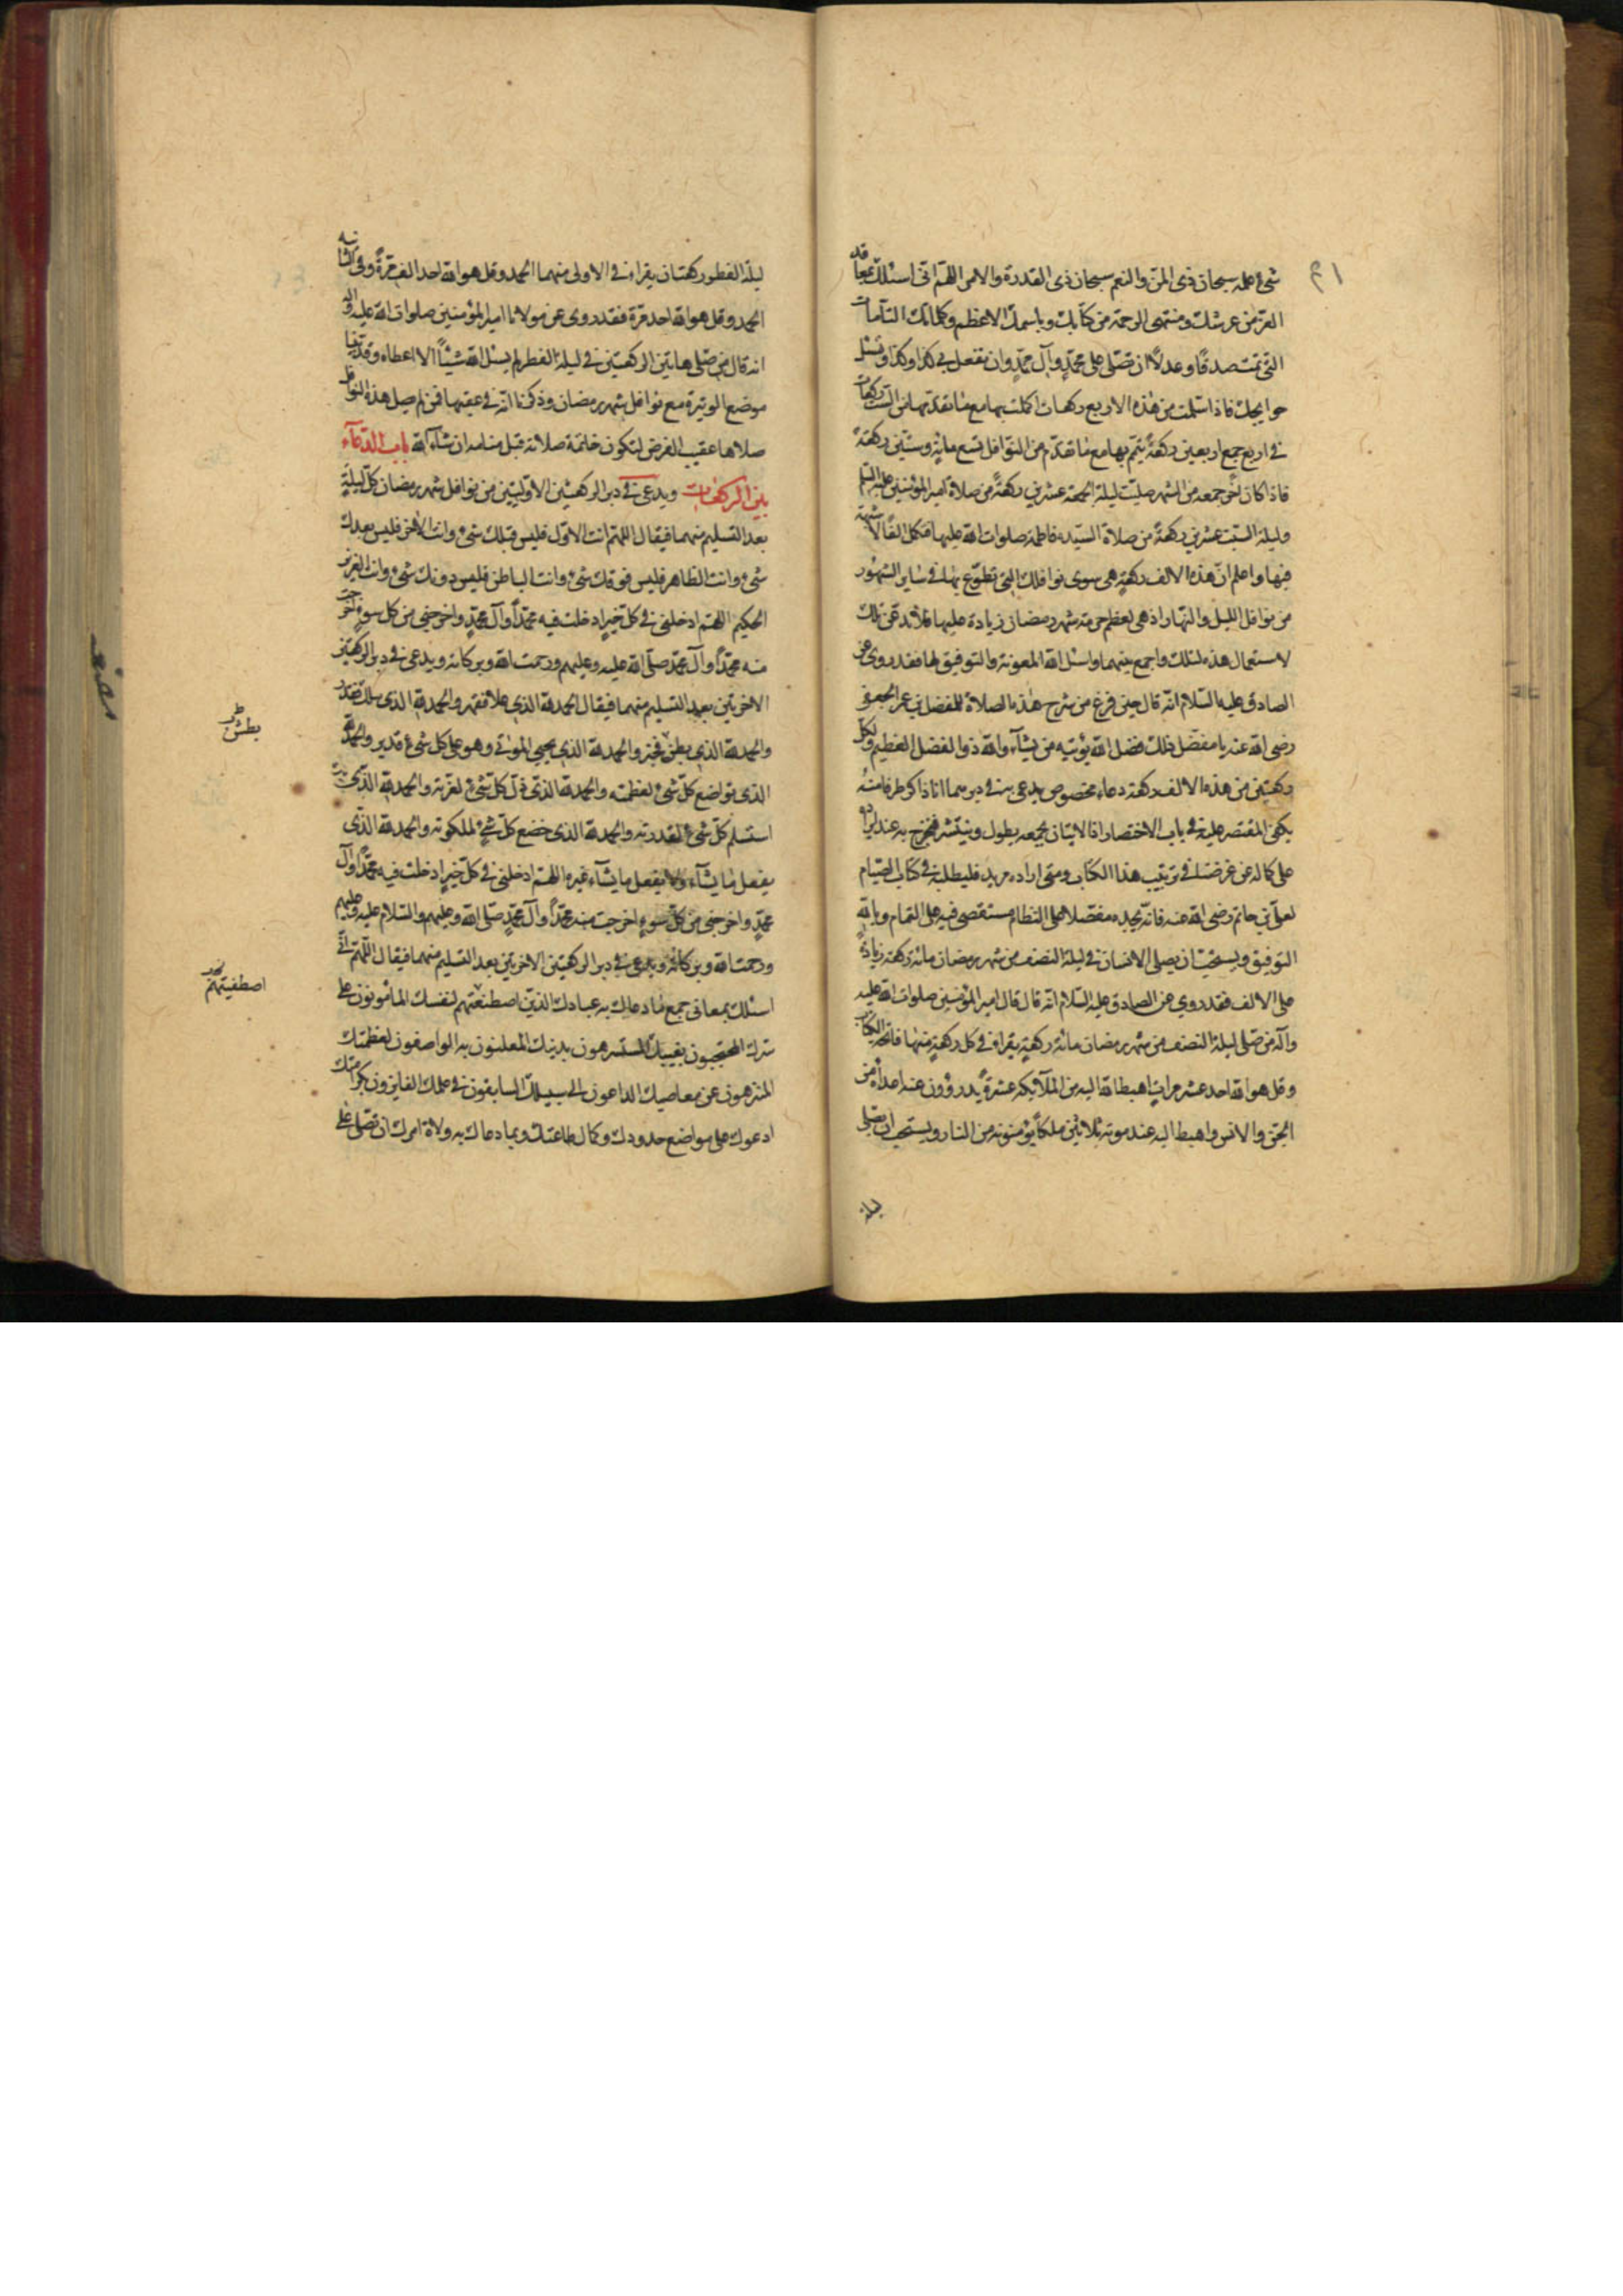 شيء علمه سبحان ذي المن والنعم سبحان ذي القدرة والامر اللهم اني اسئلك بمعاقد
العز من عرشك ومنتهى الرحمة من كتابك وباسمك الاعظم وكلماتك التآمات
التي تمت صدقًا وعدلًا ان تصلي على محمدٍ وآل محمدٍ وان تفعل بي كذا وكذا وتسئل
حوايجك فاذا سلمت من هذه الاربع ركعات اكملت بها مع ما تقدمها من الست ركعات
في اربع جمع اربعين ركعةً يتم بها مع ما تقدم من النوافل تسع مايةٍ وستين ركعةً
فاذا كان آخر جمعه من الشهر صليت ليلة الجمعة عشرين ركعةً من صلاة امير المؤمنين عليه السلم
وليلة السبت عشرين ركعةً من صلاة السيده فاطمه صلوات الله عليها فتكمل الفًا لا شبهة
فيها واعلم ان هذه الالف ركعةٍ هي سوى نوافلك التي تطوع بها في ساير الشهور
من نوافل الليل والنهار اذ هي لعظم حرمة شهر رمضان زيادة عليها فلا تدعن تلك
لاستعمال هذه لتلك واجمع بينهما واسئل الله المعونة والتوفيق لها فقد روي عن
الصادق عليه السلام انه قال حين فرغ من شرح هذه الصلاة للمفضل بن عمر الجعفي
رضي الله عنه يا مفضل ذلك فضل الله يؤتيه من يشآء والله ذو الفضل العظيم ولكل
ركعتين من هذه الالف ركعة دعاء مخصوص يدعى به في دبرهما انا ذاكر طرفا منهُ
يكفي المقتصر عليه في باب الاختصار اذ الاتيان بجميعه يطول وينتشر فنخرج به عند ايراده
على كماله عن غرضنا في ترتيب هذا الكتاب ومتى اراده مريد فليطلبه في كتاب الصيام
لعلي بن حاتم رضي الله عنه فانه يجده مفصلا على النظام مستقصى فيه على التمام وبالله
التوفيق ويستحب ان يصلي الانسان في ليلة النصف من شهر رمضان مائة ركعة زيادةً
على الالف فقد روي عن الصادق عليه السلام انه قال قال امير المؤمنين صلوات الله عليه
وآله من صلى ليلة النصف من شهر رمضان مائة ركعةٍ يقراء في كل ركعةٍ منها فاتحة الكتاب
وقل هو الله احد عشر مراتٍ اهبط الله اليه من الملآئكه عشرةً يدرؤون عنه اعدآه من
الجن والانس واهبط اليه عند موته ثلاثين ملكًا يؤمنونه من النار ويستحب ان يصلي
ليلة
ليلة الفطور ركعتان يقراء في الاولى منهما الحمد وقل هو الله احد الف مرةً وفي الثانيه
الحمد وقل هو الله احد مرة فقد روى عن مولانا امير المؤمنين صلوات الله عليه وآله
انه قال من صلى هاتين الركعتين في ليلة الفطر لم يسئل الله شيئًا الا اعطاه وقد بينا
موضع الوتيرة مع نوافل شهر رمضان وذكرنا انه في عقبها فمن لم يصل هذه النوافل
صلاها عقيب الفرض لتكون خاتمة صلاته قبل منامه ان شآء الله باب الدعآء
بين الركعات ويدعى في دبر الركعتين الاوليتين من نوافل شهر رمضان كل ليلةٍ
بعد التسليم منهما فيقال اللهم انت الاول فليس قبلك شيء وانت الاخر فليس بعدك
شيء وانت الظاهر فليس فوقك شيء وانت الباطن فليس دونك شيء وانت العزيز
الحكيم اللهم ادخلني في كل خيرٍ ادخلت فيه محمدًا وآل محمدٍ واخرجني من كل سوءٍ اخرجت
منه محمدًا وآل محمد صلى الله عليه وعليهم ورحمت الله وبركاته ويدعى في دبر الركعتين
الاخرتين بعد التسليم منهما فيقال الحمد لله الذي علا فقهر والحمد لله الذي ملك فقدر
والحمد لله الذي بطن فخبر والحمد لله الذي يحيي الموتى وهو على كل شيء قدير والحمد لله
الذي تواضع كل شيء لعظمته والحمد لله الذي ذل كل شيء لعزته والحمد لله الذي
استسلم كل شيء لقدرته والحمد لله الذي خضع كل شيءٍ لملكوته والحمد لله الذي
يفعل ما يشآء ولا يفعل ما يشآء غيره اللهم ادخلني في كل خيرٍ ادخلت فيه محمدًا وآل
محمدٍ واخرجني من كل سوءٍ اخرجت منه محمدًا وآل محمدٍ صلى الله وعليهم والسلام عليه وعليهم
ورحمت الله وبركاته ويدعى في دبر الركعتين الاخرتين بعد التسليم منهما فيقال اللهم اني
اسئلك بمعاني جميع ما دعاك به عبادك الذين اصطنعتهم لنفسك المأمونون على
سرك المحتجبون بغيبك المستسرهون بدينك المعلنون به الواصفون لعظمتك
المنزهون عن معاصيك الداعون الى سبيلك السابقون في علمك الفايزون بكرامتك
ادعوك على مواضع حدودك وكمال طاعتك وبما دعاك به ولاة امرك ان تصلي على
بطش
اصطفيتهم